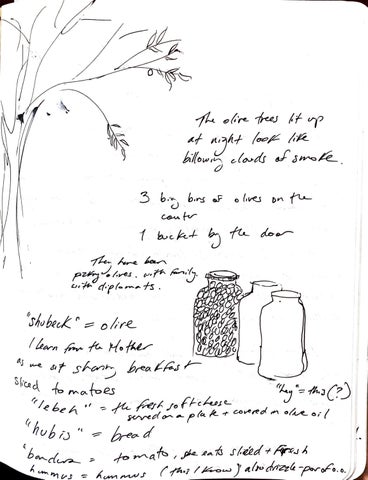 The olive trees lit up
at night look like
billowing clouds of smoke.
3 big bins of olives on the
counter
1 bucket by the door
They have been
picking olives. with family.
with diplomats.
"shubeck" = olive
I learn from the Mother
as we sit sharing breakfast
sliced tomatoes
"hay" = this (?)
"lebeh" = the fresh soft cheese
served on a plate + covered in olive oil
"hubis" = bread
"bandura" = tomato, she eats sliced + fresh
hummus = hummus (this I know) also drizzle